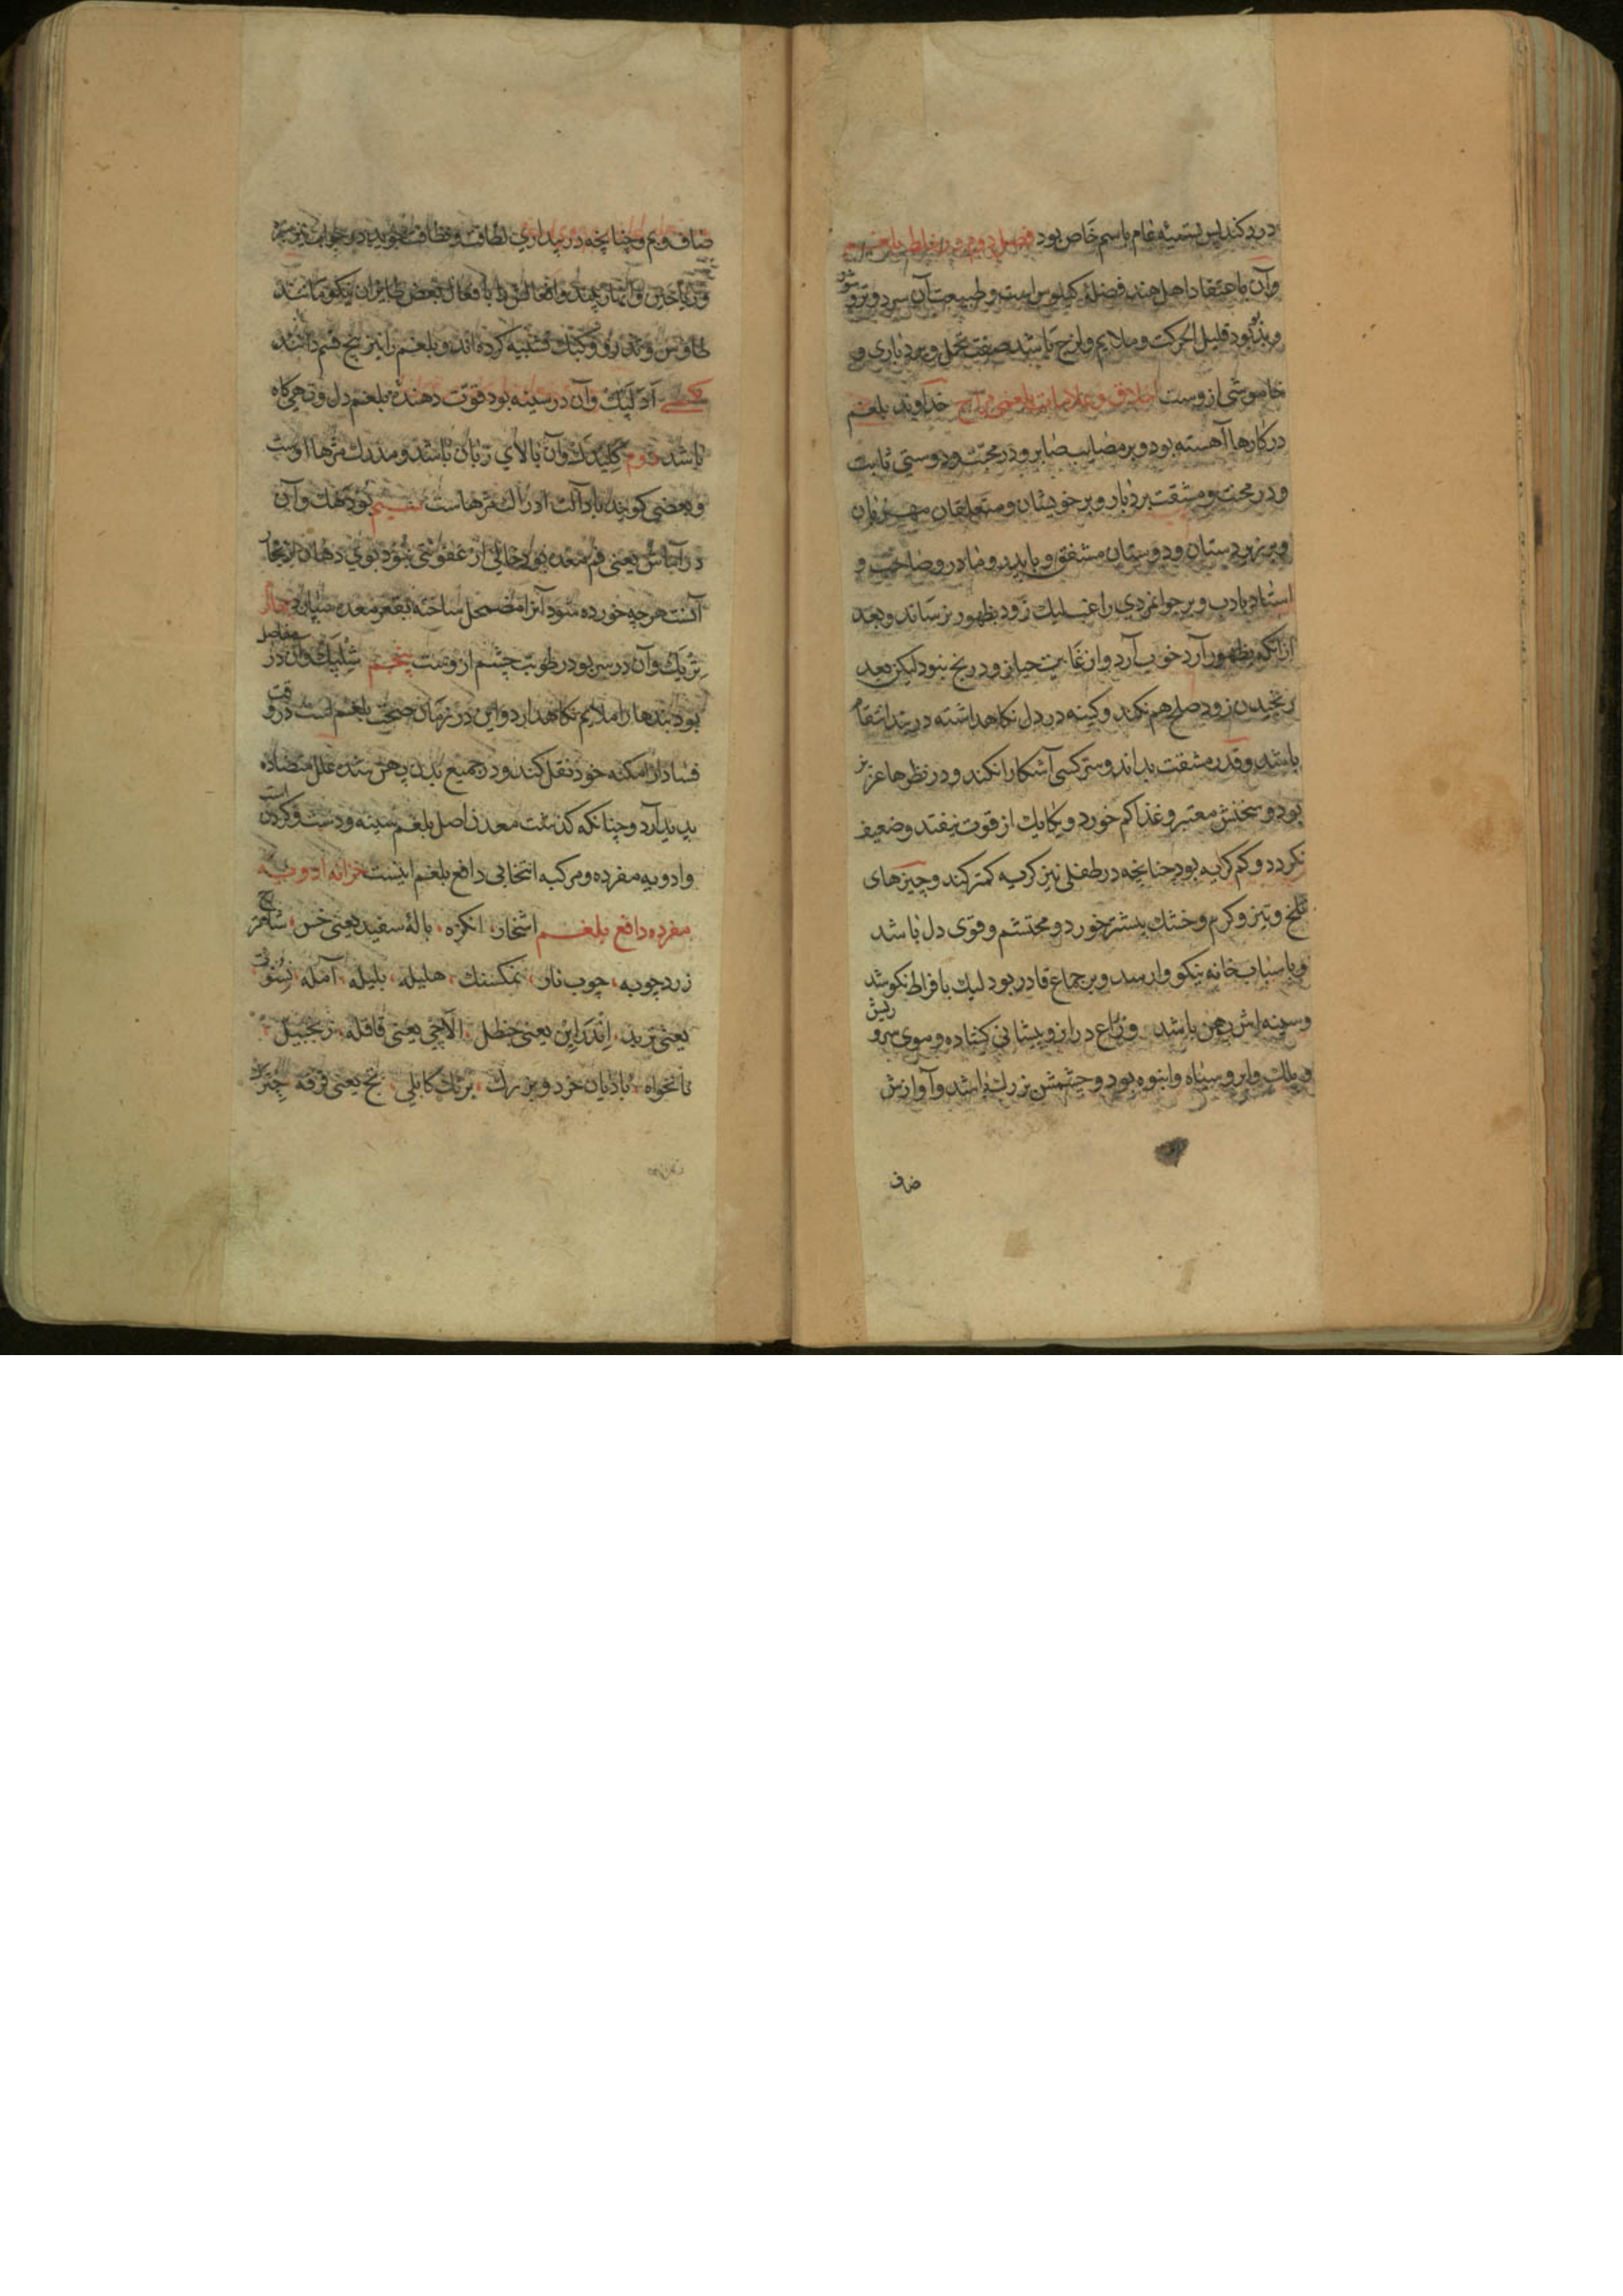 درد کند پس تسمیه عام باسم خاص بود فصل دوم در خلط بلغم
وآن باعتقاد اهل هند فضلۀ کیلوس است وطبیعت آن سرد وتر و
بود قلیل الحرکت و ملایم ولزج باشد صفت تحمل و بردباری و
خاموشی ازوست اخلاق و علامات بلغمی مزاج خداوند بلغم
در کارها آهسته بود و بر مصایب صابر و در محبت و دوستی ثابت
و در محنت و مشقت بردبار و بر خویشان و متعلقان مهربان
و بر زیردستان و دوستان مشفق و با پدر و مادر و صاحب و
استاد بادب و بر جوانمردی راغب لیک زود بظهور نرساند و بعد
ازانکه بظهور آرد خوب آرد و از غایت حیا زود رنج نبود لیکن بعد
رنجیدن زود صلح هم نکند و کینه در دل نگاهداشته در پی انتقام
باشد و قدر مشقت بداند و سر کسی آشکارا نکند و در نظرها عزیز
بود و سخنش معتبر و غذا کم خورد و یکایک از قوت نیفتد و ضعیف
نکردد و کم کریه بود چنانچه در طفلی نیز کریه کمتر کند و چیزهای
تلخ و تیز و کرم و خشک بیشتر خورد و محتشم و قوی دل باشد
و باسباب خانه نیکو وارسد و بر جماع قادر بود لیک بافراط نکوشد
و سینه اش پهن باشد و ذراع دراز و پیشانی کشاده و موی سر و ریش
و پلک و ابرو سیاه و انبوه بود و چشمش بزرک باشد و آوازش
صاف
صاف و بم و چنانچه در بیداری لطافت و نظافت جوید در خواب نیز
و ریاحین و انهار بیند و افعالش را بافعال بعض طایران نیکو مانند
طاوس و تذرو و کبک تشبیه کرده اند و بلغم را نیز پنج قسم دانند
یکی آولپک وآن در سینه بود قوت دهندۀ بلغم دل و تهیگاه
باشد دوم کلیدک وآن بالای زبان باشد و مدرک مزها اوست
و بعضی کویند بارد آلت ادراک مزهاست سیم بودهک وآن
در آماش یعنی فم معده بود خالی از عفونتی نبود بوی دهان ازینجا
آنست هرچه خورده شود آنرا مضمحل ساخته بقعر معده سپارد چهارم
ترپک وآن در سر بود رطوبت چشم ازوست پنجم شلپک وآن در مفاصل
بود بندها را ملایم نکاهدارد و این در زمان صحت بلغم است در وقت
فساد از امکنه خود نقل کند و در جمیع بدن پهن شده علل متضاده
پدید آرد و چنانکه کذشت معدن اصل بلغم سینه و دست و کردن است
و ادویه مفرده و مرکبه انتخابی دافع بلغم اینست خزانه ادویه
مفرده دافع بلغم اشخار، انکزه، بالۀ سفید یعنی خس،
زرد چوبه، چوب نار، نمکسنک، هلیله، بلیله، آمله، نسوت
یعنی تربد، اندراین یعنی حنظل، الاچی یعنی قاقله، زنجبیل،
نانخواه، بادیان خرد و بزرک، برنک کابلی، تج یعنی قرفه چترک